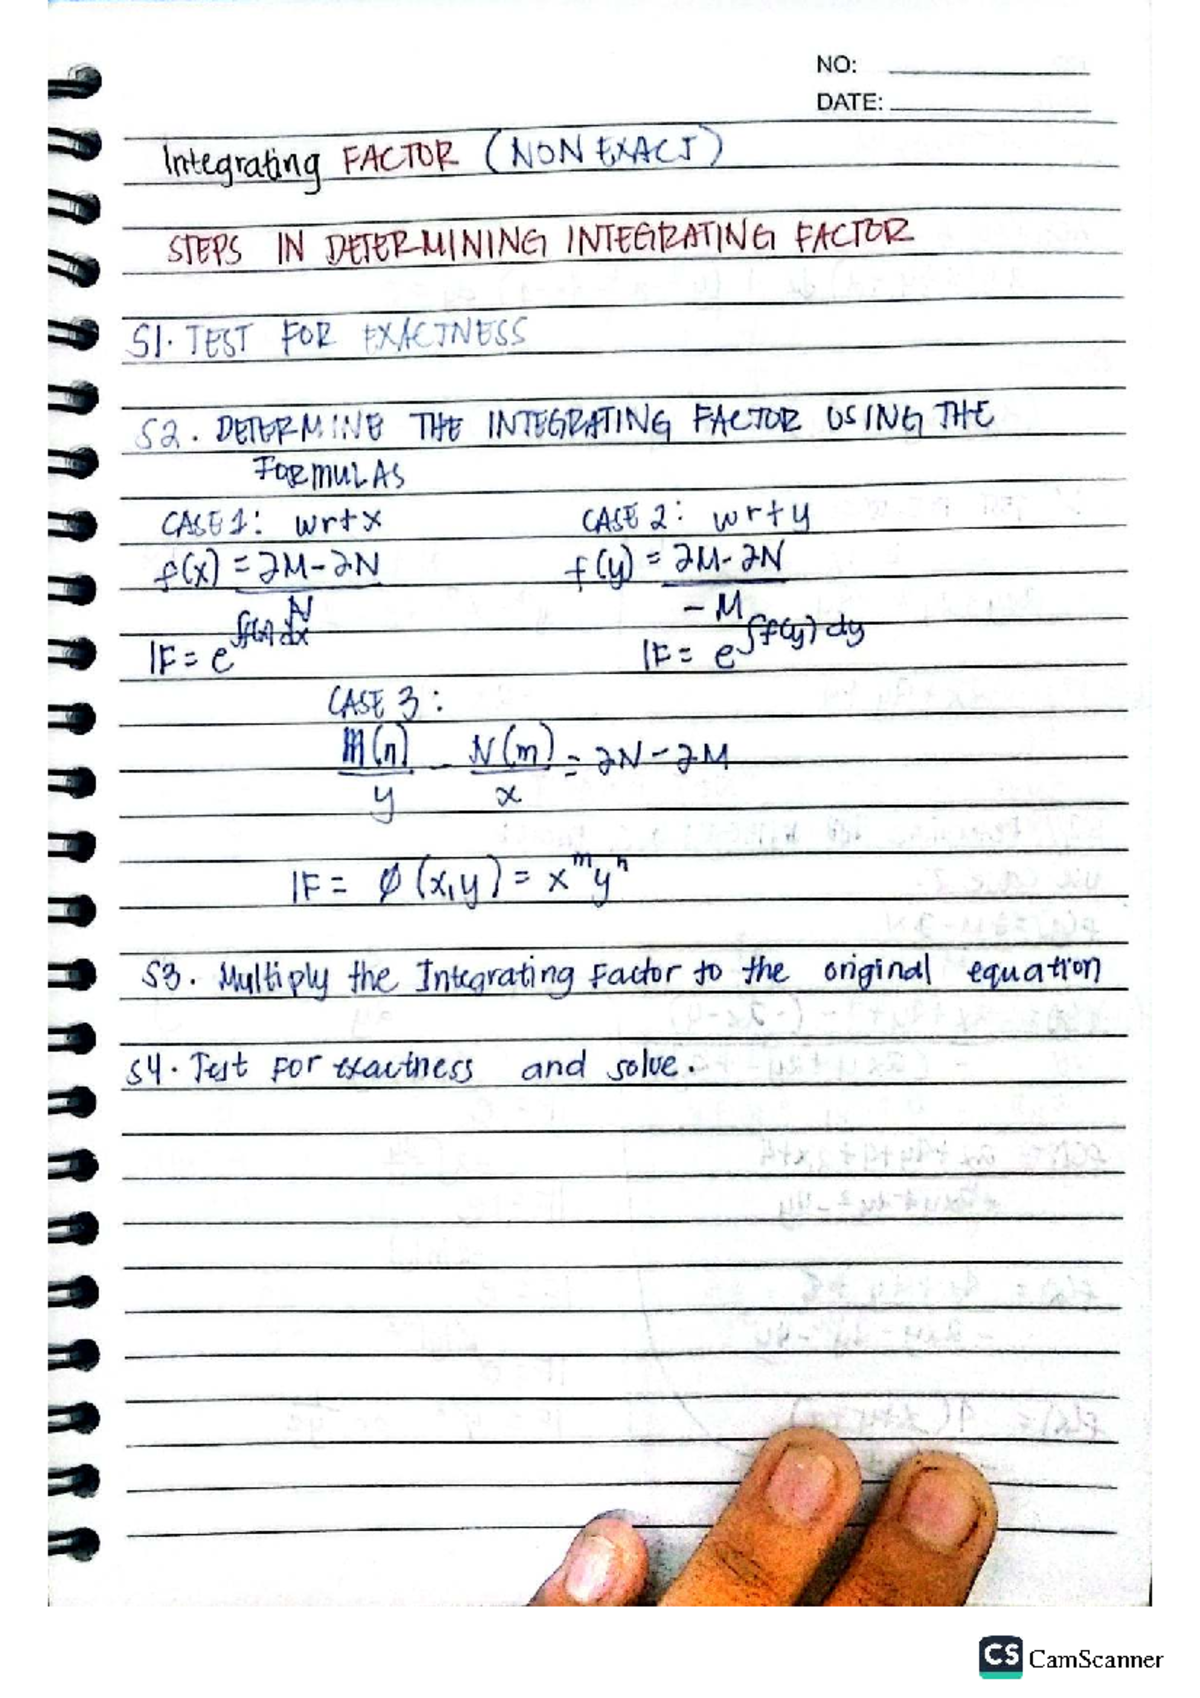 NO:
DATE:
Integrating FACTOR (NON EXACT)
STEPS IN DETERMINING INTEGRATING FACTOR
S1. TEST FOR EXACTNESS
S2. DETERMINE THE INTEGRATING FACTOR USING THE
FORMULAS
CASE 1: wrt x
CASE 2: wrt y
f(x) = ∂M-∂N
N
f(y) = ∂M-∂N
-M
IF = e^∫f(x)dx
IF = e^∫f(y)dy
CASE 3:
M(n) - N(m) = ∂N-∂M
y x
IF = Ø(x,y) = x^m y^n
S3. Multiply the Integrating Factor to the original equation
S4. Test For exactness and solve.
CS CamScanner